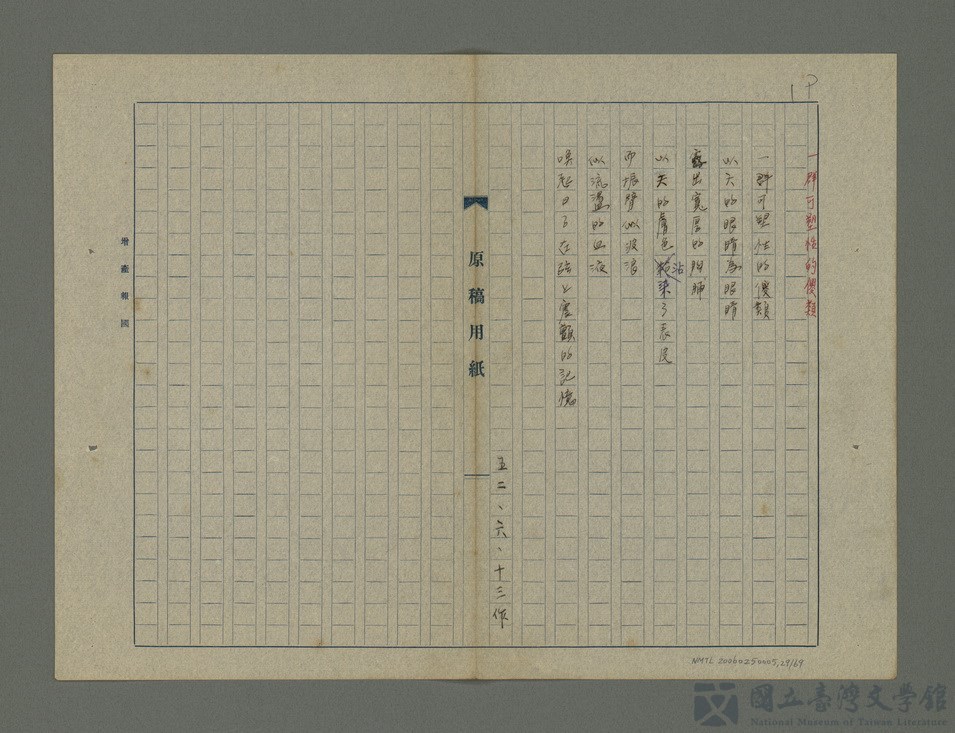 19
一群可塑性的儍類
一群可塑性的儍類
以天的眼睛為眼睛
露出寬厚的胸脯
以天的膚色沾染了表皮
而振臂似波浪
似流盪的血液
喚起日子在
的記憶
五二、六、十三作
原稿用紙
增產報國
NMTL 20060250005,29/69
國立臺灣文學館
National Museum of Taiwan Literature